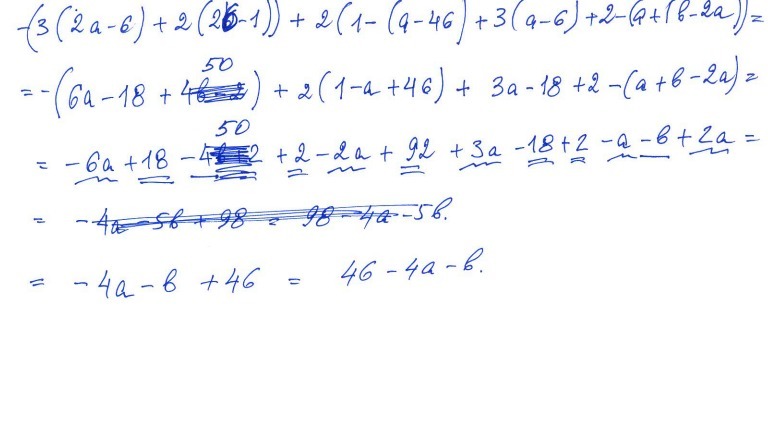 -(3(2a-6)+2(26-1))+2(1-(a-46)+3(a-6)+2-(a+(в-2a))=
50
=-(6a-18+)+2(1-a+46)+3a-18+2-(a+в-2a)=
50
=-6a+18-+2-2a+92+3a-18+2-a-в+2a=
=-4a-5в+98=98-4a-5в.
=-4a-в+46=46-4a-в.